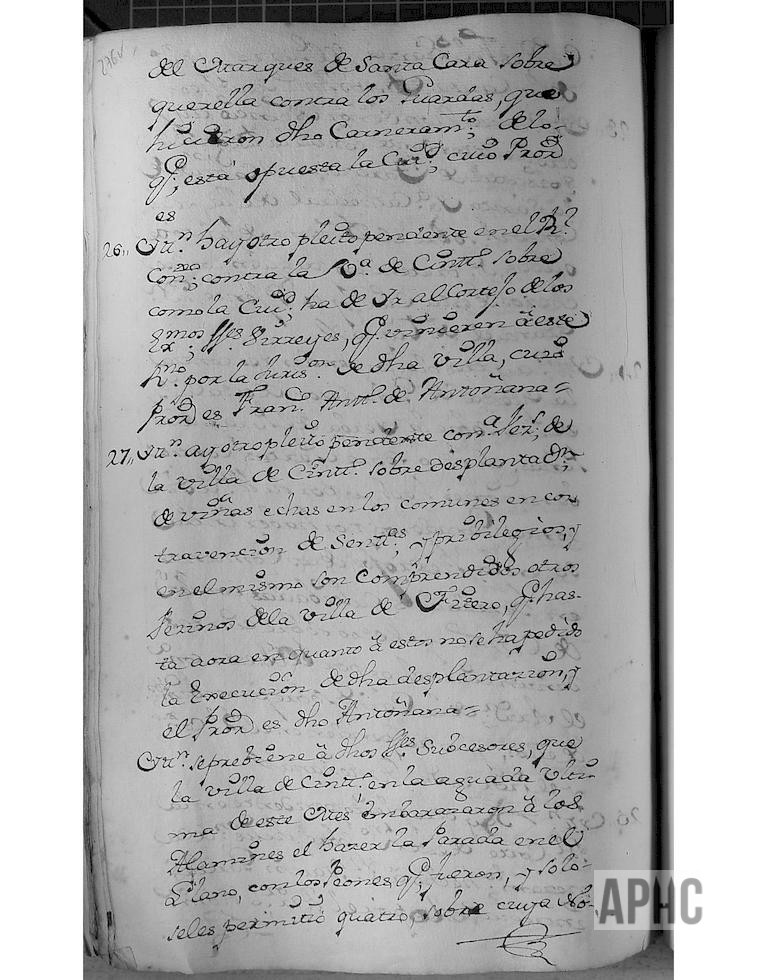 276v
del Marques de Santa Cara sobre
querella contra los Guardas, que
hicieron dho Carneram.to; de lo-
q.e está opuesta la Ciu.d; cuio Pror
es
26,, Itt.n hay otro pleito pendente en el R.l
Con.; contra la V.a de Cintt.o sobre
como la Ciu.d; ha de Ir al Cortejo de los
Ex.mos SS.res Virreyes, q.e vinieren â este
R.no por la Juris.on de dha villa, cuio
Pror es Fran.co Antt.o de Antoñana=
27,, Itt.n ay otro pleito pendente con.a Vez.s de
la villa de Cintt.o sobre desplantaon,
de viñas echas en los comunes en con
travencion de Sentt.as, y pribilegios, y
en el mismo son Comprendidos otros
Vezinos dela villa de Fitero, q.e has-
ta aora en quanto â estos no se ha pedido
la Execución de dha desplantazion, y
el Pror es dho Antoñana=
Itt.n se prebiene â dhos SS.res Subcesores, que
la villa de Cintt.o en la aguada Ulti-
ma de este Mes embarazaron â los
Alamines el hazer la Parada en el
Llano, con los Peones q.e fueron, y solo-
seles permitió quatro, sobre cuya No-
APHC